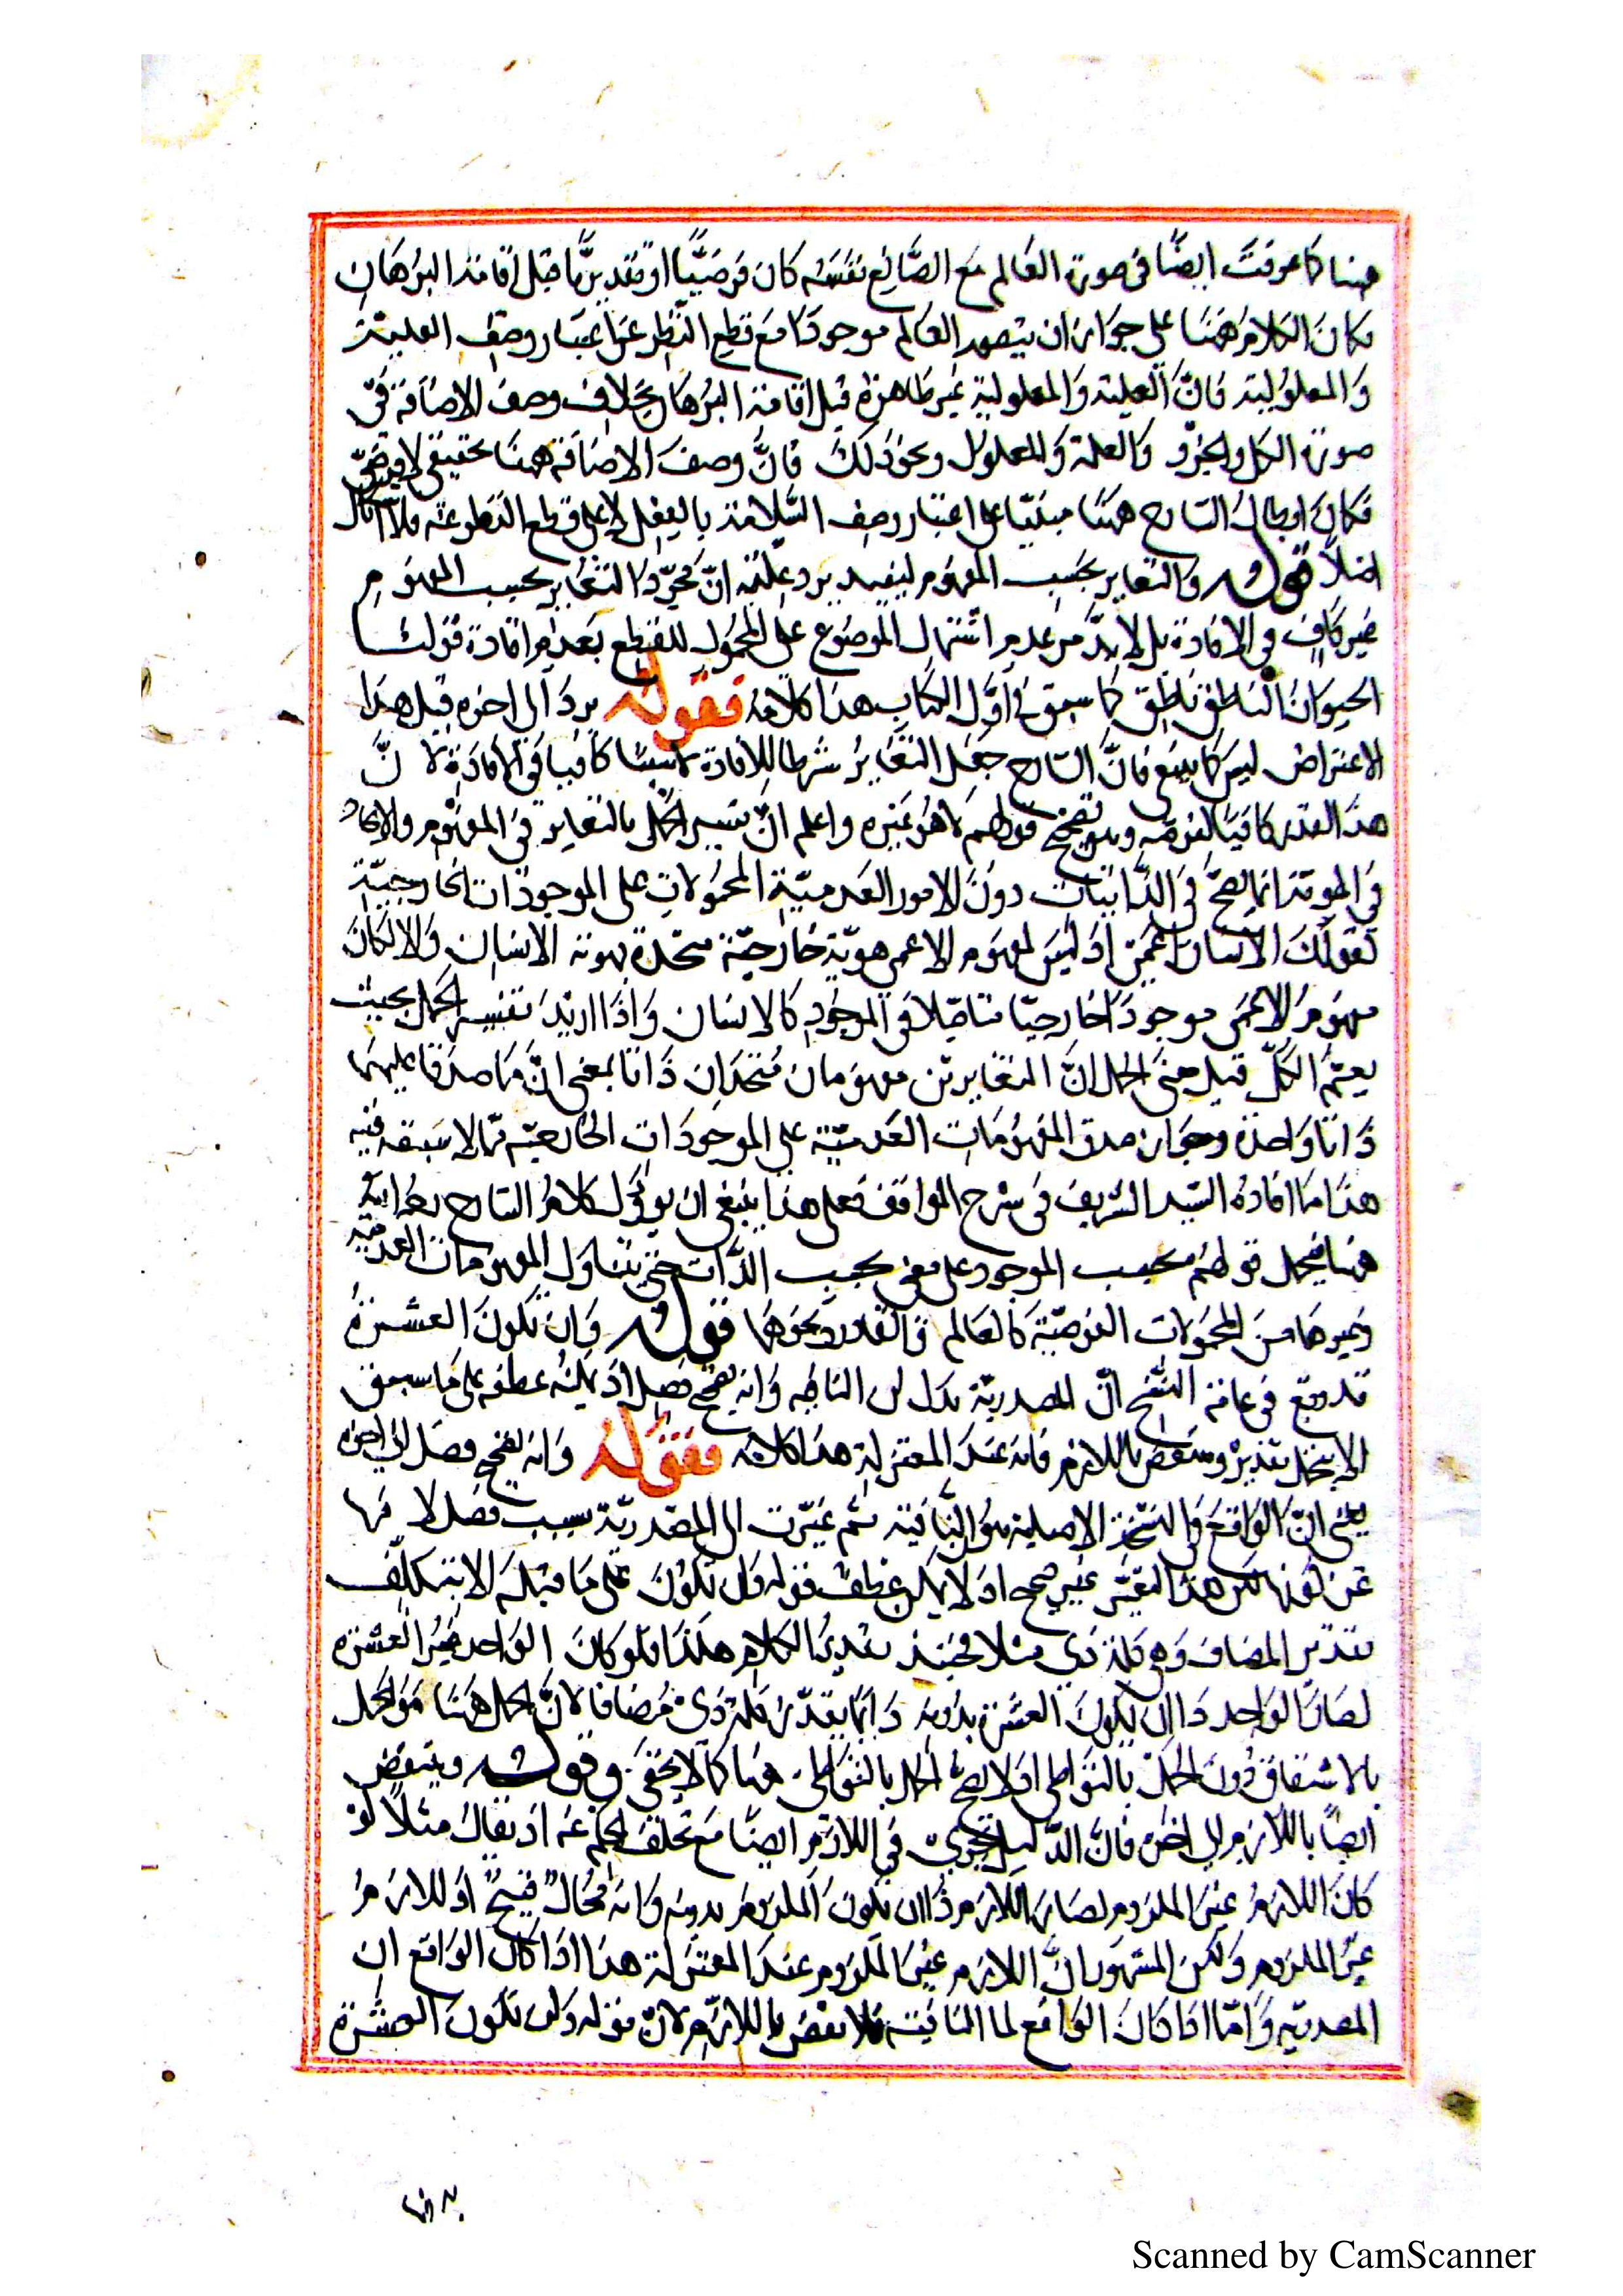 هنا كما عرفت ايضًا فى صورة العَالم مَع الصَّانِع نفسَه كان فرضيًّا او تقديريًّا قبل اقامة البرهَان
فكانَ الكلامُ ههنَا على جوَاز ان يتصور العَالم موجودًا مَع قطعِ النَّظرِ عَن اعتبَار وصفِ العلية
وَالمعلوُلية فانَّ العلية وَالمعلولية غيرظاهرة قبل اقامة البرُهَان بخلاف وصفَ الاضَافة فى
صورة الكل والجزؤ وَالعلة وَالمعلول ونحو ذلكَ فانَّ وصفَ الاضَافة ههنَا تحقيقى لا فرضىّ
فكانَ ابطال الشارح ههنَا مبنيّا على اعتبَار وصف بالفِعل لا على قطع النَظر عنه فلا اشكال
اصلاً قوله وَالتغاير بحَسب المفهوم ليفيد يرد عليْه انّ مجرّد التغاير بحسب المفهوم
غير كافٍ فى الافادة بل لا بدَّ من عدم اشتمال الموضوع على المحمُول للقطِع بعَدم افادة قولنا
الحيوانُ النَاطق نَاطق كما سبق فى اوَّل الكتَابِ هذا كلامهُ فقوله يرد الى اخره قيل هذا
الاعتراض ليسَ كما ينبغى فانَّ الشارح جعَل التغَايُر شرطا للافادة لا سببًا كافيا فى الافادَة لانَّ
هذا القدر كافيا لغرضه وهو تصحيح قولهم لا هُو غيره واعلم انّ تفسير الحَمل بالتغاير فى المفهوم والاتحاد
فى الهوية انما يصحّ فى الذَّاتيَات دونَ الامور العَدميّةِ المحمُولاتِ على الموجودَات الخارجيّة
كقولكَ الانسان اعمى اذ ليسَ لمفهوَم الاعمى هويّة خارجيّة متحدة بهوية الانسَان وَالا لكانَ
مهفومُ الاعمى موجودًا خارجيّا متاصّلا فى الموجود كالانسَان وَاذا اريدَ تفسير الحَمل بحيث
يعمّ الكلّ قيل معنى الحمل انَّ المتغايرين مفهومًا متحدَان ذاتا بمعنى انَّ مَا صدقا عليهما
ذاتا وَاحدة وجوَاز صدق المفهوُمَات العَدميّة على الموجودَات الخارجيّه ممّا لا شبهة فيه
هذا مَا افادهُ السّيد الشريف فى شرح المواقف فعلى هذا ينبغى ان يُوَوَّل كلامُ الشارح
هنا فيحمل قولهُم بحسب الموجود على معنى بحسب الذَّات حتى يتناول المفهومات العدميّة
وغيرهَا منَ المحمُولات العَرضيّة كالعَالم وَالقادر ونحوهَا قوله وَان تكونَ العشرةُ
قد وقع فى عامّة النُّسَخ انّ المصدريّة بدل لن النافيه وَانه يفتح فصل اذ يمكن عطفه على مَا سبق
الا بتحمل تقدير وينتقض باللازم فانه عندَ المعتزلة هذا كلامه فقوله وَانه يفتح فصَل الى اخره
يعنى انّ الوَاقعَ فى النُّسخة الاصلية هوَ النَّافية ثم غيّرت الى المصدريّة بسبب فصَل لا فيها
عن نونها لكن هذا التغيّر غير صحيح اذ لا يمكن عطف قوله وَان تكونَ على ما قبله الا بتكلّف
تقدير المضاف وهى كلمة ذى مثلا فحينئذ تقديرُ الكلام هكذا فلو كانَ الوَاحد غيرُ العشره
لصَار الوَاحد ذَا ان تكونَ العشرة بدونه وَانما يقدّر كلمة ذى مُضافا لانَّ الحمل ههنا هُوَ الحَمل
بالاشتقاق دونَ الحملَ بالتواطى اذ لا يصحّ الحمل بالتواطى هنا كمَا لا يخفى وقوله وينتقض
ايضًا باللازم الى اخره فانَّ الدَّليل يجرى فى اللازم ايضًا مَع تخلّف الحكم عَنه اذ يقال مثلاً لو
كانَ اللازمُ غيرَ الملزوم لصَارَ اللازم ذا ان تكونَ الملزومُ بدونه وَانه مُحَالٌ قبيحٌ اذ اللازمُ
غيرُ الملزوم وَلكن المشهور انَّ اللازم غيْرَ الملزوم عندَ المعتزلة هذا اذا كانَ الوَاقع ان
المصدريّه وَامّا اذا كانَ الوَاقع لما النَافيَة فلا نقضَ باللازم لانّ قوله وَلن تكونَ العشَرة